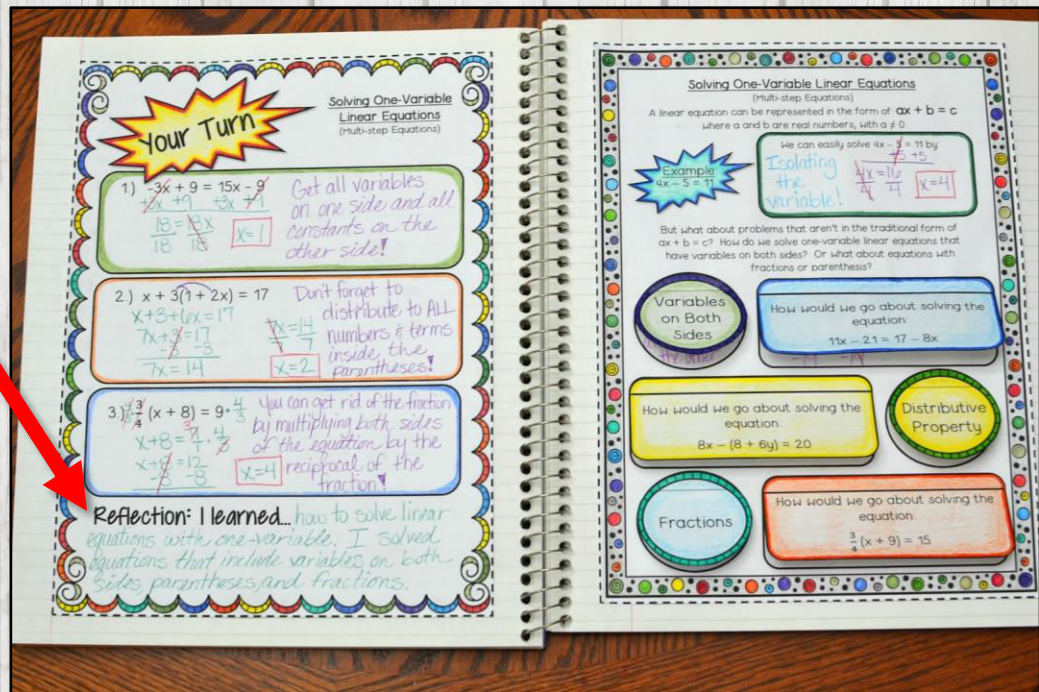 Your Turn
Solving One-Variable
Linear Equations
(Multi-step Equations)
1.) -3x + 9 = 15x - 9
+3x +9 +3x +9
18 = 18x
18 18
x=1
Get all variables
on one side and all
constants on the
other side!
2.) x + 3(1 + 2x) = 17
x+3+6x=17
7x+3=17
-3 -3
7x=14
7x=14
7 7
x=2
Don't forget to
distribute to ALL
numbers & terms
inside the
parentheses!
3.) 4/3 · 3/4 (x + 8) = 9 · 4/3
x+8=
x+8=12
-8 -8
x=4
You can get rid of the fraction
by multiplying both sides
of the equation by the
reciprocal of the
fraction!
Reflection: I learned... how to solve linear
equations with one-variable. I solved
equations that include variables on both
sides, parentheses, and fractions.
Solving One-Variable Linear Equations
(Multi-step Equations)
A linear equation can be represented in the form of: ax + b = c
where a and b are real numbers, with a ≠ 0.
Example:
4x - 5 = 11
We can easily solve 4x - 5 = 11 by:
+5 +5
Isolating
the
variable!
4x=16
4 4
x=4
But what about problems that aren't in the traditional form of
ax + b = c? How do we solve one-variable linear equations that
have variables on both sides? Or what about equations with
fractions or parenthesis?
Variables
on Both
Sides
the other
How would we go about solving the
equation:
11x - 21 = 17 - 8x
How would we go about solving the
equation:
8x - (8 + 6y) = 20
Distributive
Property
Fractions
How would we go about solving the
equation:
3/4 (x + 9) = 15